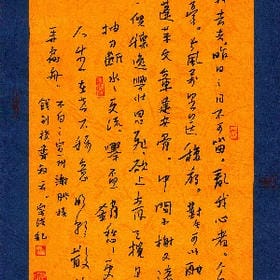 我去者昨日之日不可留亂我心者
長風萬里送秋雁對此可以酣高
蓬萊文章建安骨中間小謝又清
俱懷逸興壯思飛欲上青天攬明
抽刀斷水水更流舉杯
銷愁愁
人生在世不稱意明朝散
弄扁舟
李白之宣州謝朓樓
餞別校書叔雲